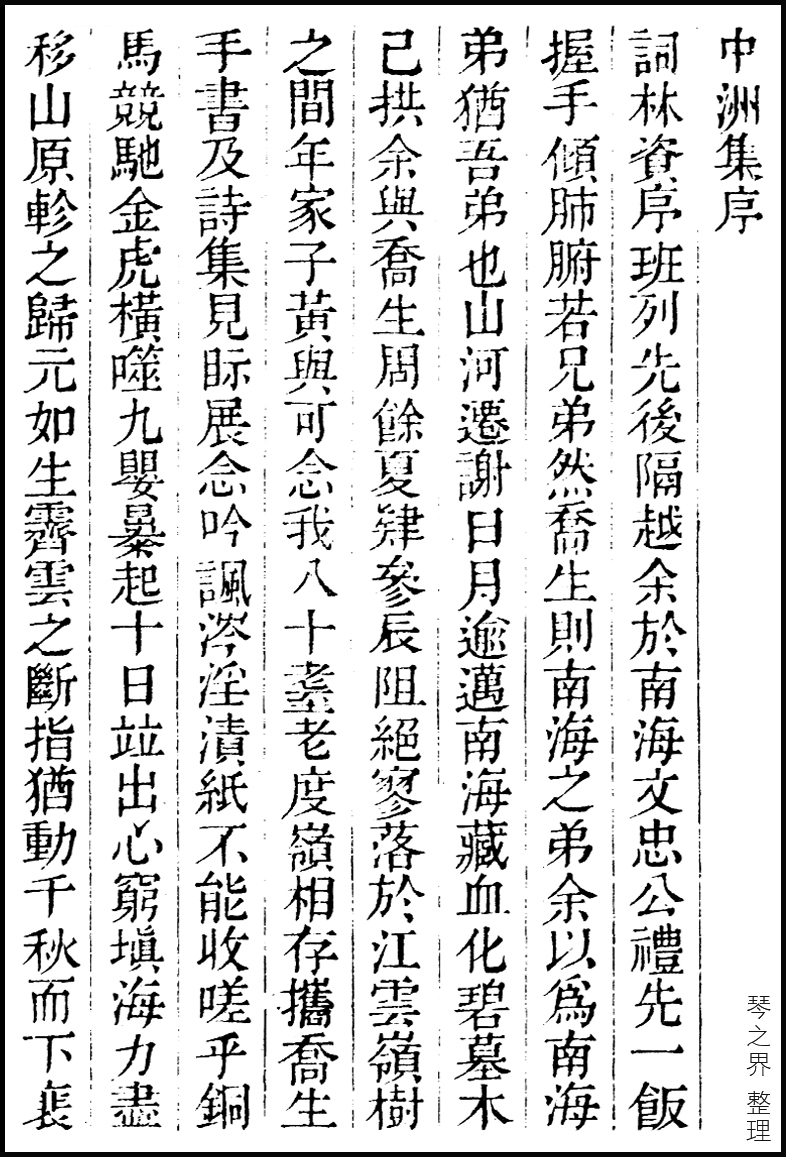 中洲集序
詞林資序班列先後隔越余於南海文忠公禮先一飯
握手傾肺腑若兄弟然喬生則南海之弟余以爲南海
弟猶吾弟也山河遷謝日月逾邁南海藏血化碧墓木
己拱余與喬生周餘夏肄參辰阻絕寥落於江雲嶺樹
之間年家子黃與可念我八十耋老度嶺相存攜喬生
手書及詩集見眎展念吟諷涔淫漬紙不能收嗟乎銅
馬競馳金虎橫噬九嬰暴起十日竝出心窮塡海力盡
移山原軫之歸元如生霽雲之斷指猶動千秋而下褱
琴之界 整理